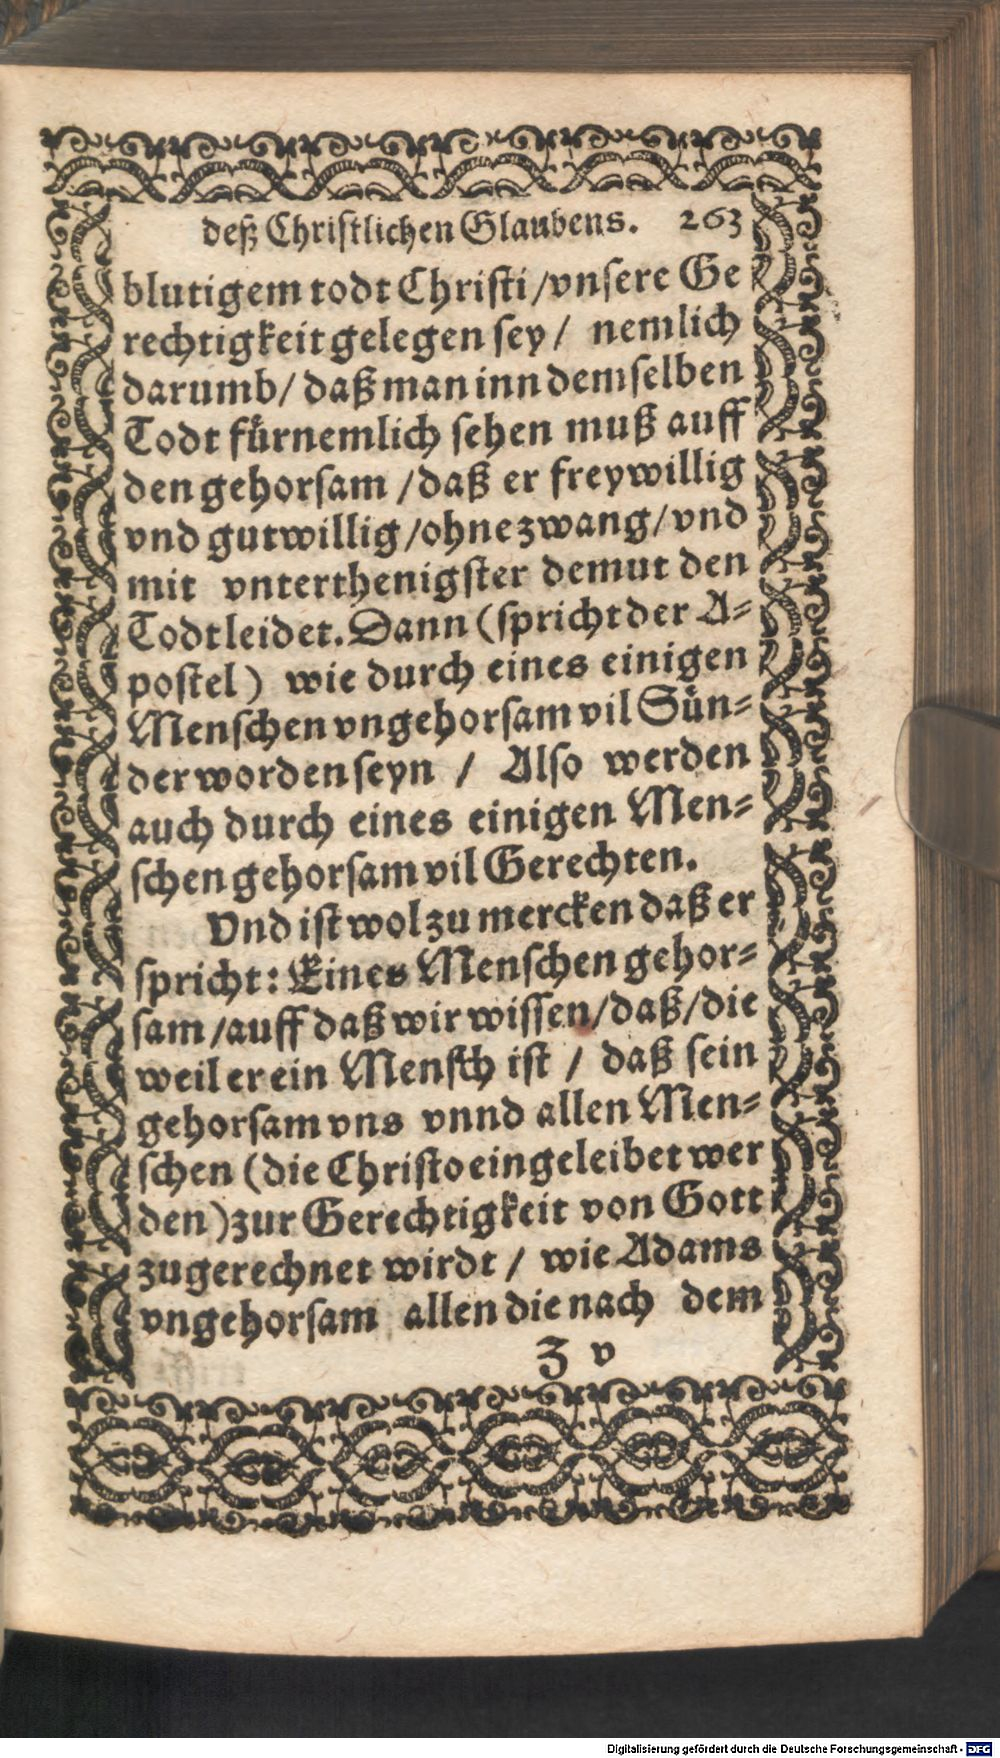 deß Christlichen Glaubens. 263
blutigem todt Christi/vnsere Ge
rechtigkeit gelegen sey/ nemlich
darumb/ daß man inn demselben
Todt fürnemlich sehen muß auff
den gehorsam /daß er freywillig
vnd gutwillig/ohne zwang/vnd
mit vnterthenigster demut den
Todt leidet. Dann (spricht der A-
postel) wie durch eines einigen
Menschen vngehorsam vil Sün-
der worden seyn / Also werden
auch durch eines einigen Men-
schen gehorsam vil Gerechten.
Vnd ist wol zu mercken daß er
spricht: Eines Menschen gehor-
sam/auff daß wir wissen/daß/die
weil er ein Mensch ist / daß sein
gehorsam vns vnnd allen Men-
schen (die Christo eingeleibet wer
den) zur Gerechtigkeit von Gott
zugerechnet wirdt / wie Adams
vngehorsam allen die nach dem
Z v
Digitalisierung gefördert durch die Deutsche Forschungsgemeinschaft - DFG